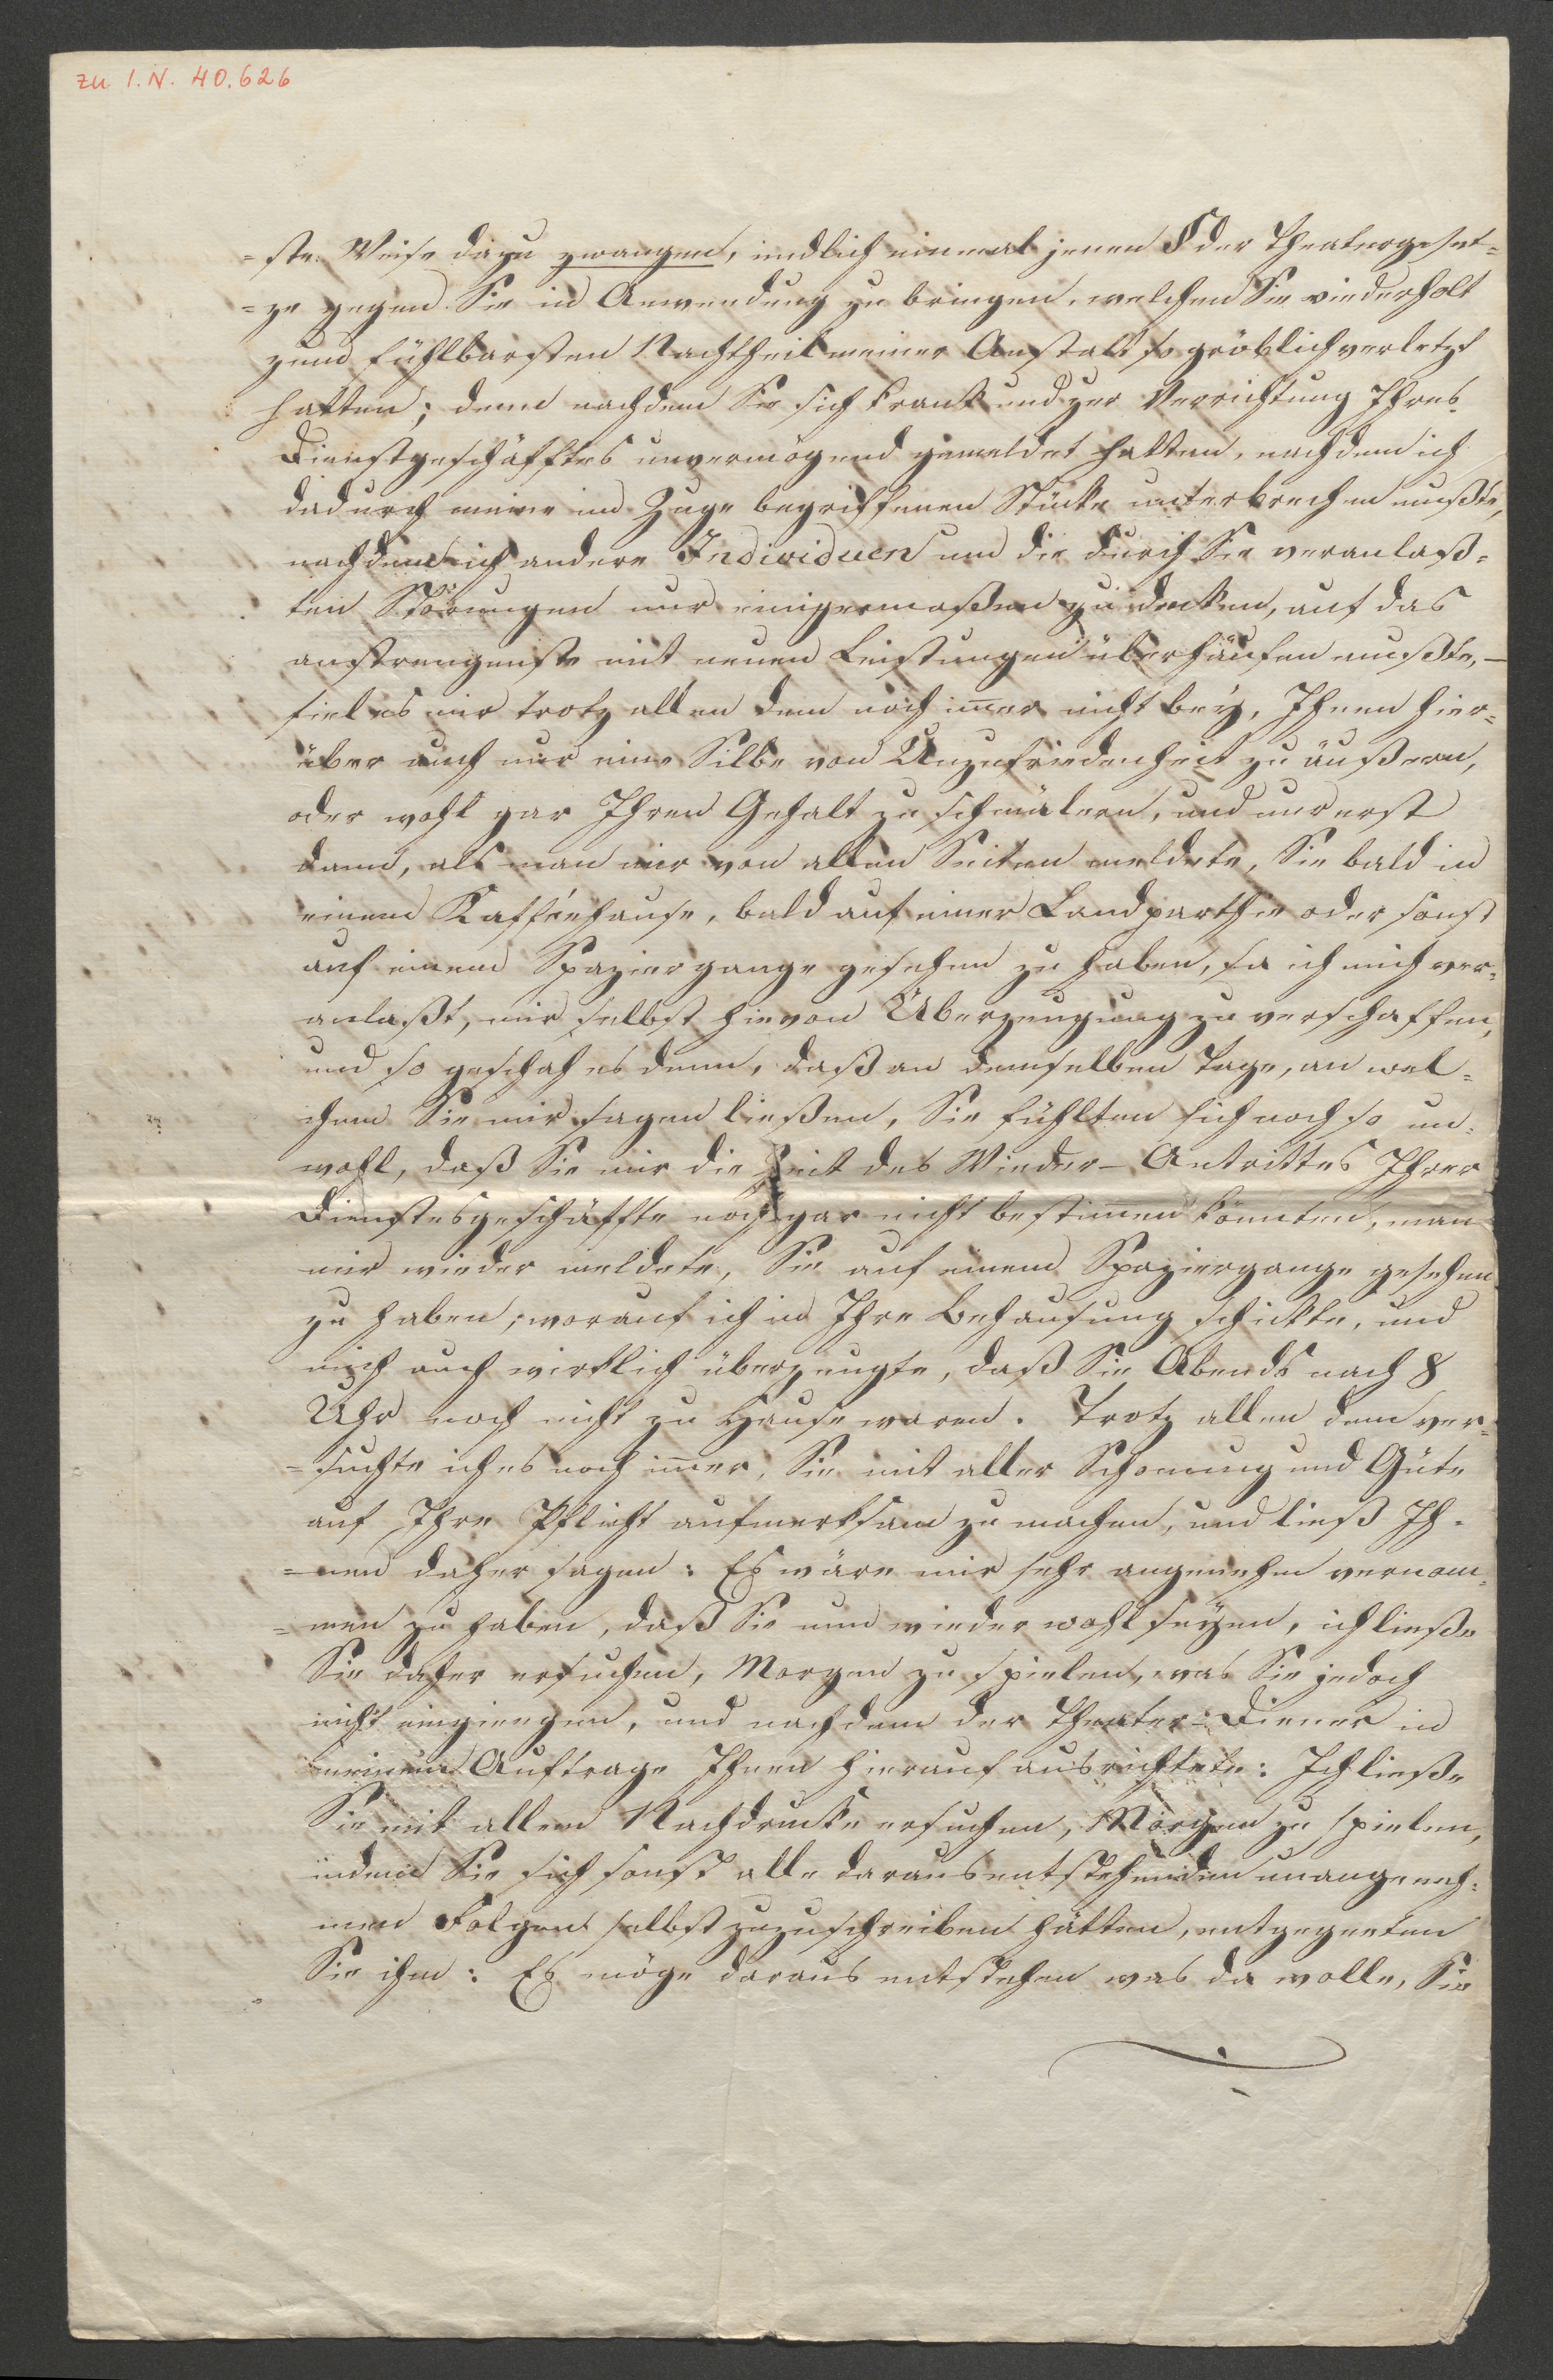 zu I.N. 40.626
=ste Weise dazu zwangen, endlich einmal jenen § der Theatergeset=
=ze gegen Sie in Anwendung zu bringen, welchen Sie wiederholt
zum fühlbarsten Nachtheil meiner Anstalt so gröblich verletzt
hatten; denn nachdem Sie sich krank und zur Verrichtung Ihres
Dienstgeschäfftes unvermögend gemeldet hatten, nachdem ich
dadurch meine im Zuge begriffenen Stücke unterbrechen mußte,
nachdem ich andere Individuen um die durch Sie veranlaß=
ten Störungen nur einigermaßen zu decken, auf das
anstrengenste mit neuen Leistungen überhäufen mußte, –
fiel es mir trotz allen dem noch im̅er nicht bey, Ihnen hier=
über auch nur eine Silbe von Unzufriedenheit zu äußern,
oder wohl gar Ihren Gehalt zu schmälern, und nur erst
dann, als man mir von allen Seiten meldete, Sie bald in
einem Kafféehause, bald auf einer Landparthie oder sonst
auf einem Spaziergange gesehen zu haben, sa ich mich ver=
anlaßt, mir selbst hievon Überzeugung zu verschaffen,
und so geschah es denn, daß an demselben Tage, an wel=
chem Sie mir sagen ließen, Sie fühlten sich noch so un=
wohl, daß Sie mir die Zeit des Wieder-Antrittes Ihrer
Dienstesgeschäffte noch gar nicht bestim̅en könnten, man
mir wieder meldete, Sie auf einem Spaziergange gesehen
zu haben; worauf ich in Ihre Behausung schickte, und
mich auch wirklich überzeugte, daß Sie Abends nach 8
Uhr noch nicht zu Hause waren. Trotz allen dem ver=
=suchte ich es noch im̅er, Sie mit aller Schonung und Güte
auf Ihre Pflicht aufmerksam zu machen, und ließ Ih=
=nen daher sagen: Es wäre mir sehr angenehm vernom=
=men zu haben, daß Sie nun wieder wohl seyen, ich ließe
Sie daher ersuchen, Morgen zu spielen, was Sie jedoch
nicht eingiengen, und nachdem der Theater=Diener in
meinem Auftrage Ihnen hierauf ausrichtete: Ich ließe
Sie mit allem Nachdrucke ersuchen, Morgen zu spielen,
indem Sie sich sonst alle daraus entstehenden unangeneh=
men Folgen selbst zuzuschreiben hätten, entgegneten
Sie ihm: Es möge daraus entstehen was da wolle, Sie